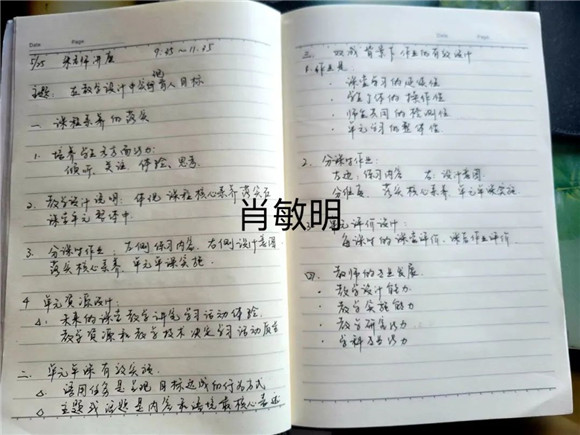 Date Page
5/25 讲座 9:25~11:25
主题: 在教学设计中 育人目标
一 课程素养的落实
1. 培养学生 方面能力:
倾听、关注、体验、思考
2. 教学设计说明: 体现 课程核心素养落实在
课堂单元整体中
3. 分课时作业, 左侧练习内容, 右侧设计意图
落实核心素养, 单元单课实施.
4 单元资源设计:
△. 未来的课堂教学讲究学习活动体验.
教学资源和教学技术决定学习活动质量
二. 单元单课有效实施.
△ 语用任务是呈现目标达成的行为方式
△ 主题或话题是内容和语境最核心
Date Page
三 双减背景下作业的有效设计
1. 作业是
· 课堂学习的延续性
· 的操作性
· 师生共同的检测性
· 单元学习的整体性
2. 分课时作业:
左边: 练习内容 右: 设计意图
落实核心素养 单元单课实施
肖敏明
单元评价设计:
每课时的课堂评价, 课后作业评价
四. 教师的专业发展
· 教学设计能力
· 教学实施能力
· 教学研究能力
· 学科专业能力